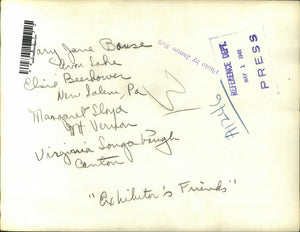 Mary Jane Bause
Avon Lake
Elsie Beerbower
New Salem, Pa
Margaret Lloyd
Mt Vernon
Virginia Longabaugh
Canton
"Exhibitor's Friends"
Photo by James
REFERENCE DEPT.
MAY 1 1940
PRESS
A1246